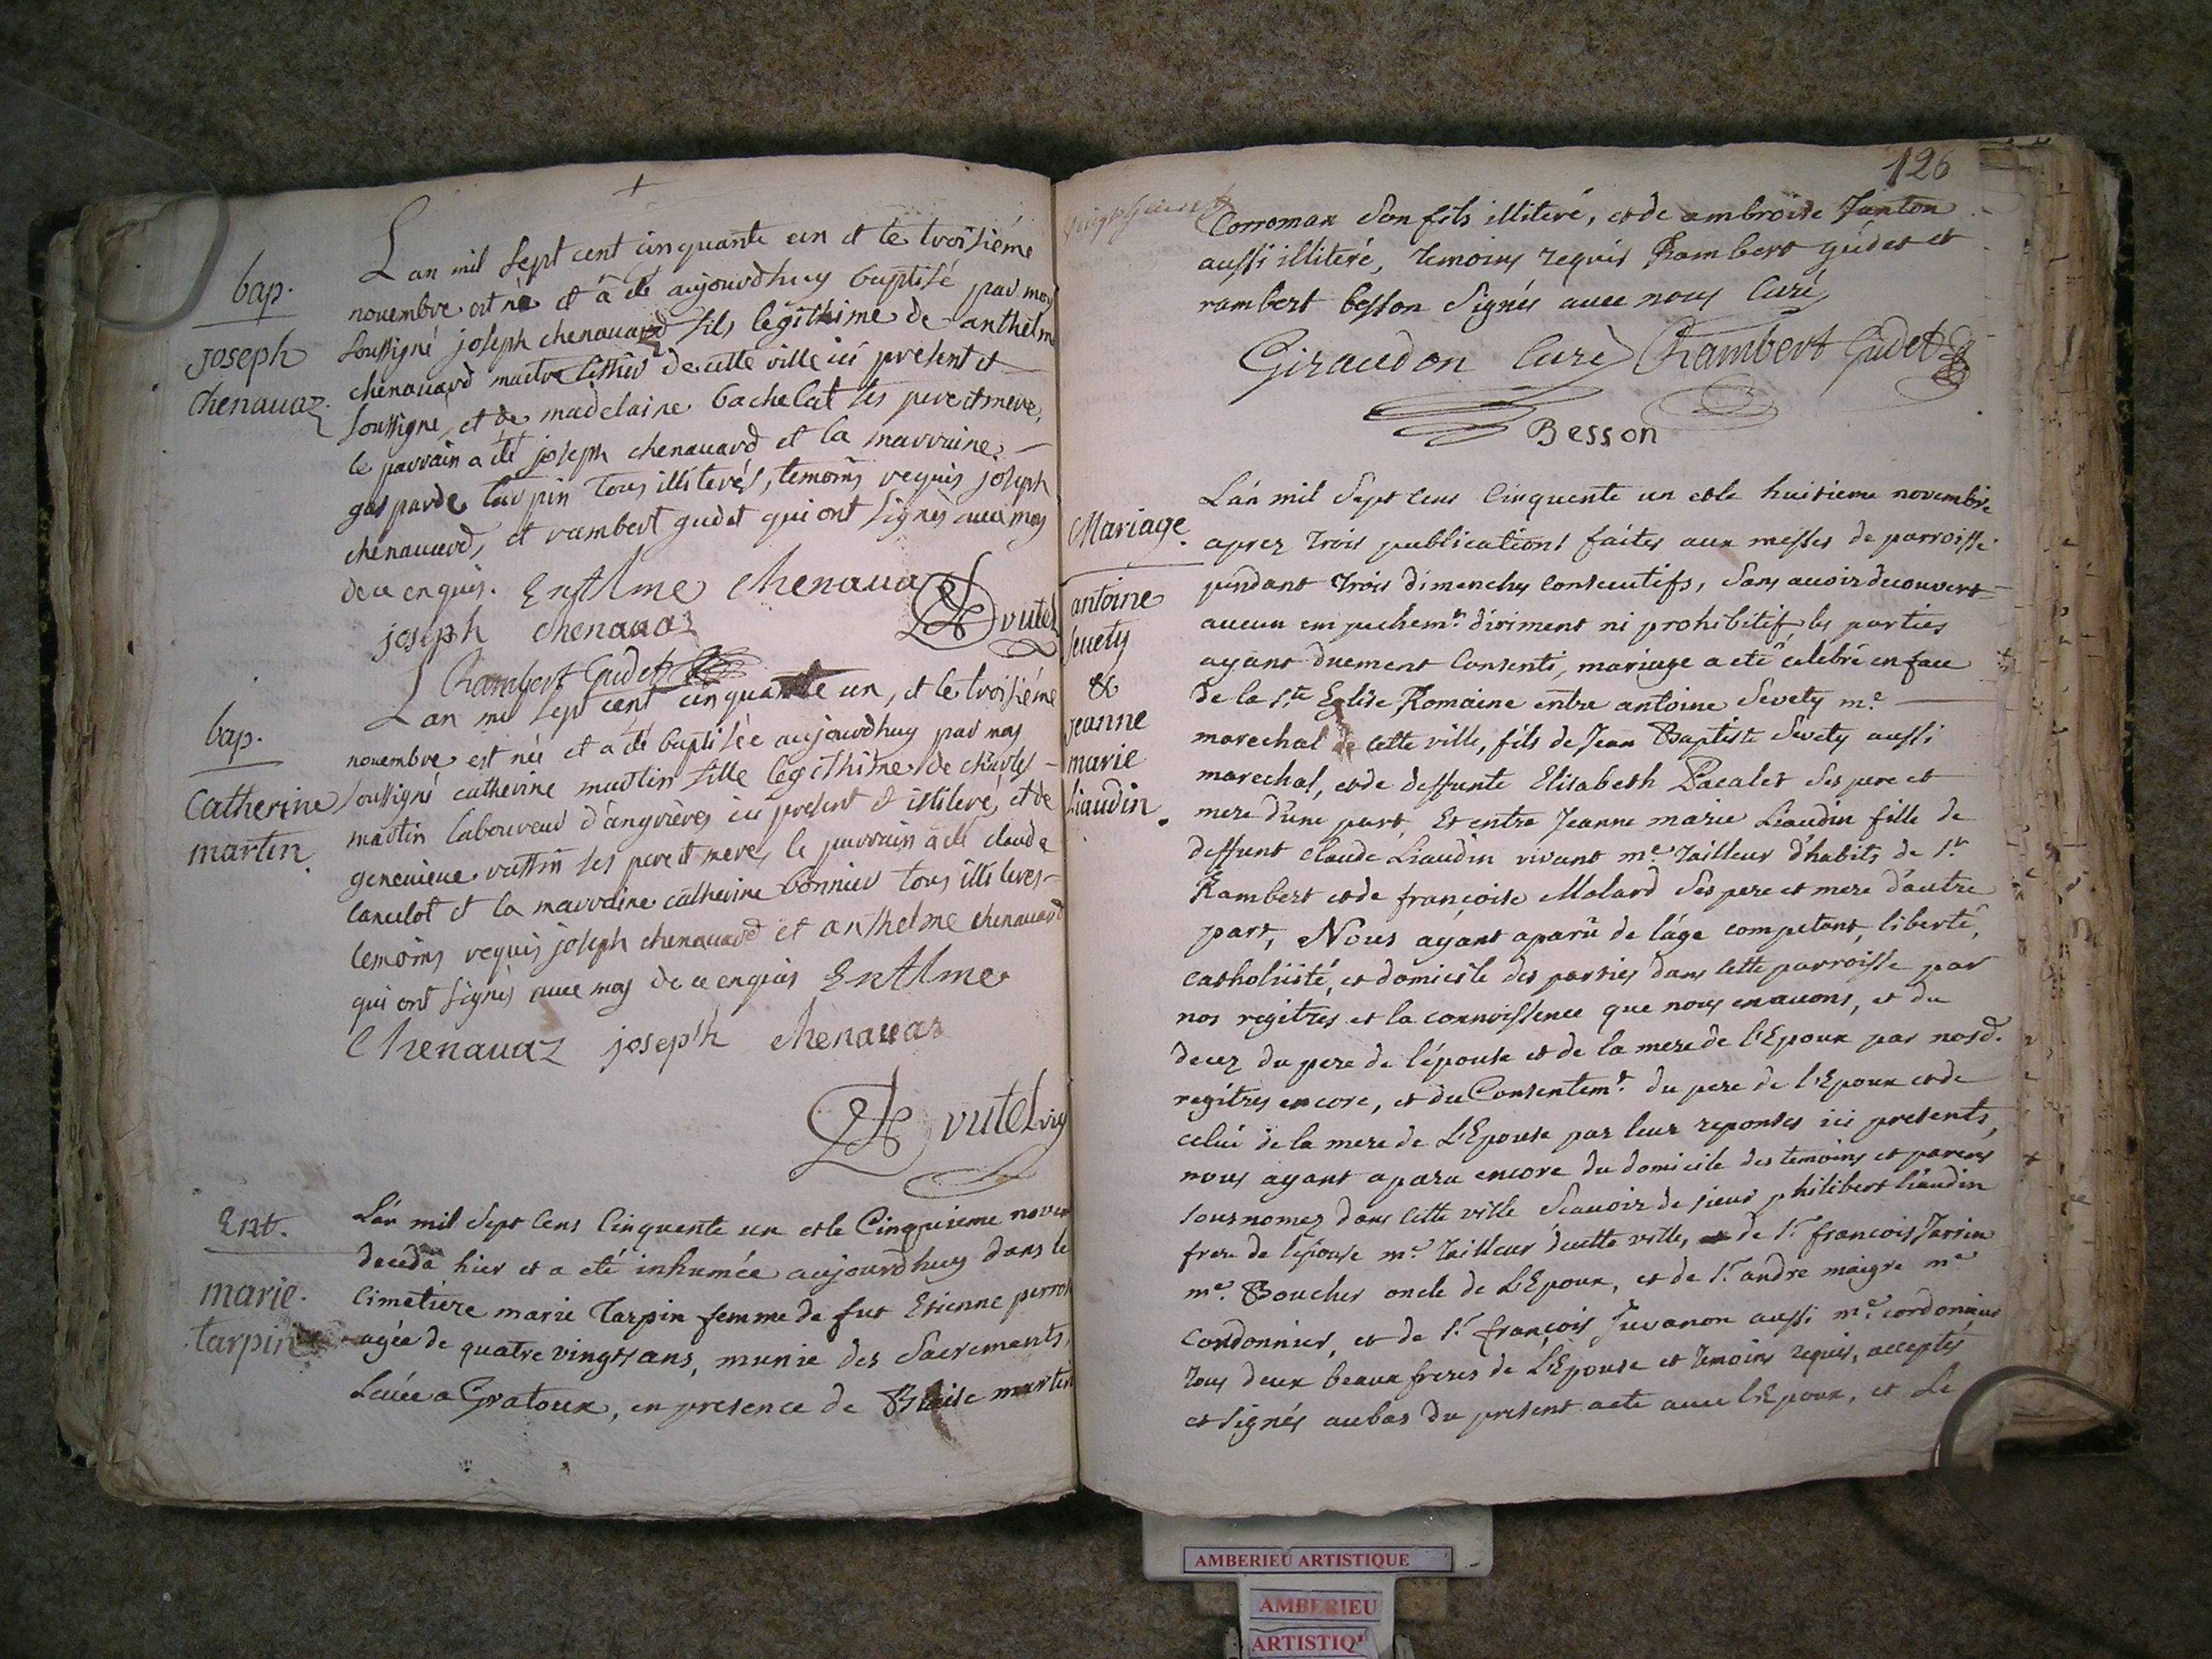 bap.
joseph
chenauaz.
Lan mil sept cent cinquante un et le troisiéme
nouembre est né et à eté aujourdhuy baptisé par moy
soussigné joseph chenauard fils legithime de anthelm
chenauard maitre de cette ville ici present et
soussigné, et de madelaine bachelat ses pere et mere,
le parrain a eté joseph chenauard et la marraine
gasparde tarpin tous illiterés, temoins requis joseph
chenauard, et rambert gudet qui ont signés auec moy
de ce enquis. Enthlme chenauaz
joseph chenauaz
vutel
Rambert Gudet
bap.
Catherine
martin.
Lan mil sept cent cinquante un, et le troisiéme
nouembre est née et a eté baptisée aujourdhuy par moy
soussigné catherine martin fille legithime de charles
martin laboureur d'angrières ici present et illiteré, et de
geneuieue ses pere et mere, le parrain a eté claude
lancelot et la marraine catherine bonnier tous illiteres
temoins requis joseph chenauard et anthelme chenauard
qui ont signés auec moy de ce enquis Enthlme
Chenauaz joseph chenauaz
vutel vic
Ent.
marie.
tarpin
L'an mil Sept Cens Cinquente un et le Cinquieme novem
deceda hier et a eté inhumée aujourdhuy dans le
Cimetiere marie Tarpin femme de fut Etienne perrot
agée de quatre vingts ans, munie des Sacrements,
Levée a Gratoux, en presence de Blaise martin
126
Corroman Son fils illiteré, et de ambroise Janton
aussi illiteré, temoins requis Rambert gudet et
rambert besson Signés auec nous Curé,
Giraudon Curè Rambert Gudet
Besson
Mariage.
antoine
Seuety
&
jeanne
marie
Liaudin.
L'an mil Sept Cens Cinquente un et le huitieme novembre
aprez trois publications faites aux messes de parroisse
pendant trois dimanches Consecutifs, Sans auoir decouvert
aucun empechemt. diriment ni prohibitif, les parties
ayant duement Consenti, mariage a eté celébré en face
de la Ste. Eglise Romaine entre antoine Sevety me.
marechal de cette ville, fils de Jean Baptiste Sevety aussi
marechal, et de deffunte Elisabeth Pacalet Ses pere et
mere d'une part, Et entre Jeanne marie Liaudin fille de
deffunt claude Liaudin vivant me. Tailleur d'habits de St.
Rambert et de françoise Molard Ses pere et mere d'autre
part, Nous ayant aparû de l'age competant, liberté,
Catholicité, et domicile des parties dans Cette parroisse par
nos regitres et la connoissence que nous en auons, et du
decez du pere de l'épouse et de la mere de l'Epoux par nosd.
regitres encore, et du Consentemt. du pere de l'Epoux et de
celui de la mere de L'Epouse par leur reponses ici presents,
nous ayant aparu encore du domicile des temoins et parens
sousnomez dans Cette ville Scauoir de sieur philibert liaudin
frere de l'epouse me. Tailleur de cette ville, de Sr. francois Jarrin
me. Boucher oncle de L'Epoux, et de Sr. andre maigre me.
Cordonnier, et de Sr. françois Juvanon aussi me. cordonnier
tous deux beaux freres de L'Epouse et temoins requis, acceptés
et Signés aubas du present acte auec l'Epoux, et Le
AMBERIEU ARTISTIQUE
AMBERIEU
ARTISTIQ